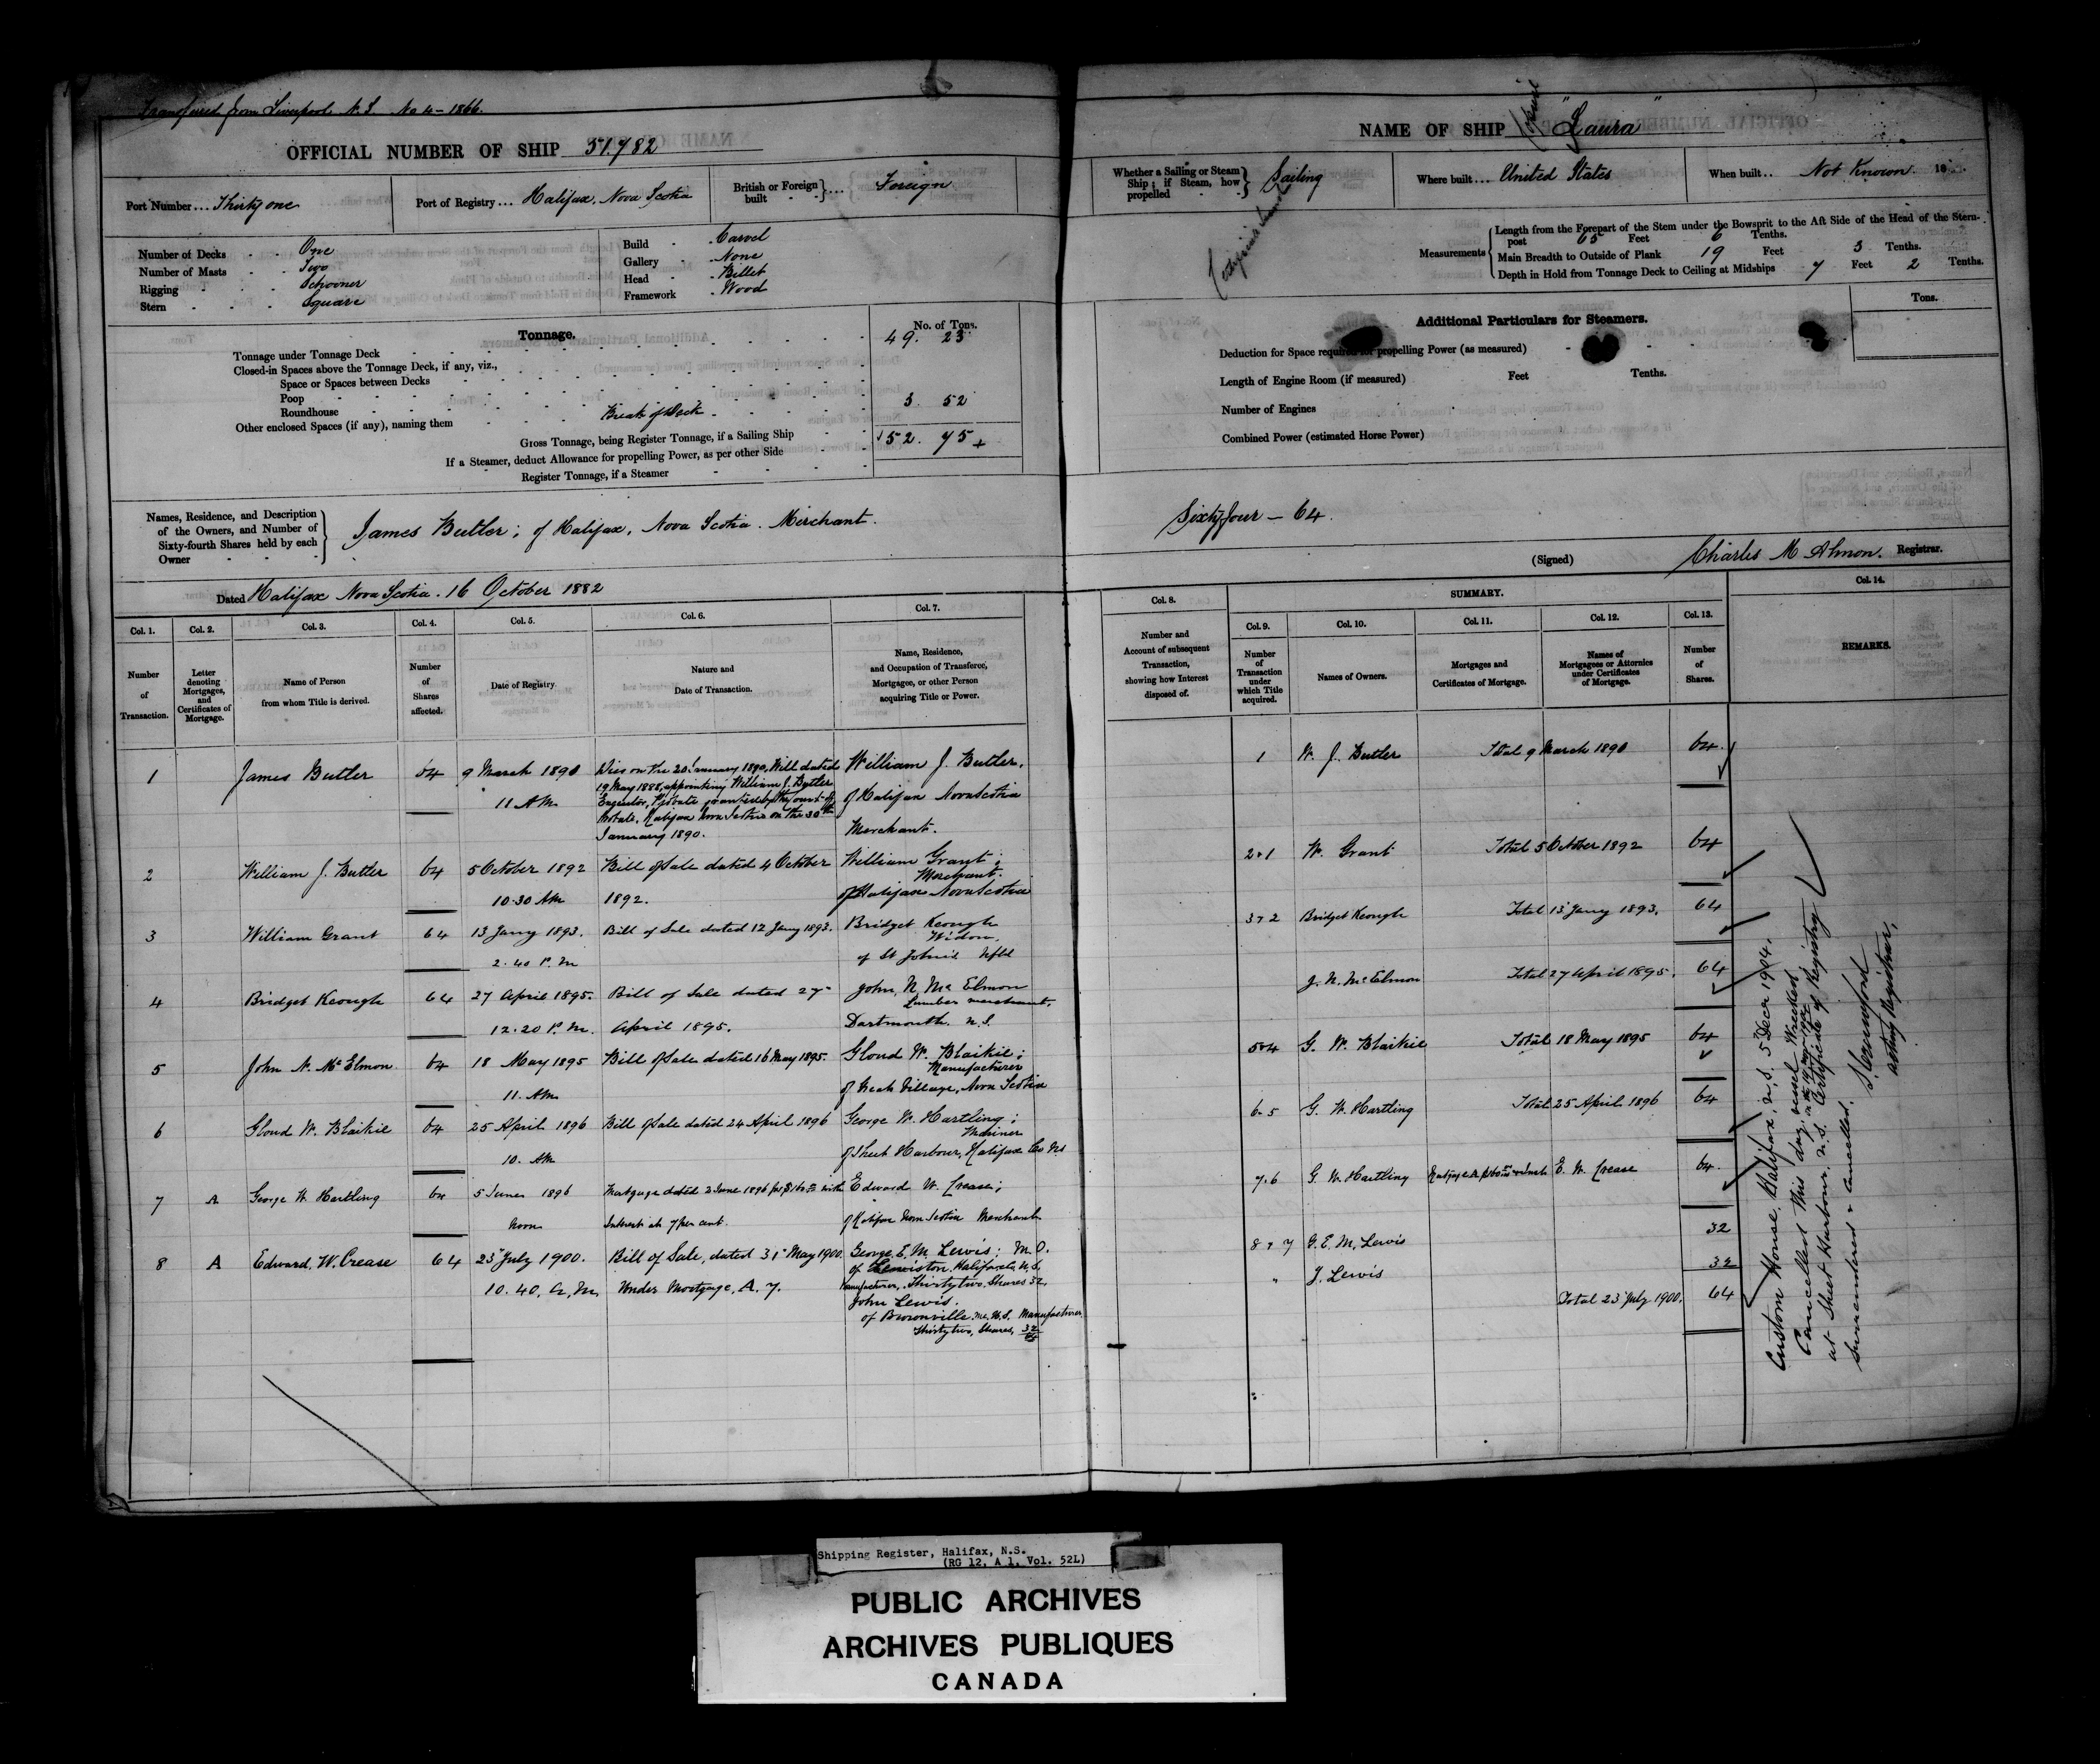 Transferred from Liverpool N.S. No 4 - 1866.
OFFICIAL NUMBER OF SHIP 51.782
NAME OF SHIP "Laura"
Port Number ... Thirty one
Port of Registry ... Halifax, Nova Scotia
British or Foreign built ... Foreign
Whether a Sailing or Steam Ship; if Steam, how propelled Sailing
Where built ... United States
When built .. Not Known 18
Number of Decks One
Number of Masts Two
Rigging Schooner
Stern Square
Build Carvel
Gallery None
Head Billet
Framework Wood
Measurements
Length from the Forepart of the Stem under the Bowsprit to the Aft Side of the Head of the Stern-
post 65 Feet 6 Tenths.
Main Breadth to Outside of Plank 19 Feet 3 Tenths.
Depth in Hold from Tonnage Deck to Ceiling at Midships 7 Feet 2 Tenths.
Tonnage.
No. of Tons.
Tonnage under Tonnage Deck 49. 23
Closed-in Spaces above the Tonnage Deck, if any, viz.,
Space or Spaces between Decks
Poop
Roundhouse
Other enclosed Spaces (if any), naming them Break of Deck 3. 52
Gross Tonnage, being Register Tonnage, if a Sailing Ship 52. 75
If a Steamer, deduct Allowance for propelling Power, as per other Side
Register Tonnage, if a Steamer
Additional Particulars for Steamers.
Tons.
Deduction for Space required for propelling Power (as measured)
Length of Engine Room (if measured) Feet Tenths.
Number of Engines
Combined Power (estimated Horse Power)
Names, Residence, and Description
of the Owners, and Number of
Sixty-fourth Shares held by each
Owner
James Butler; of Halifax, Nova Scotia. Merchant.
Sixty four - 64.
(Signed) Charles M Almon. Registrar.
Dated Halifax Nova Scotia. 16 October 1882
Col. 1.
Number
of
Transaction.
Col. 2.
Letter
denoting
Mortgages,
and
Certificates of
Mortgage.
Col. 3.
Name of Person
from whom Title is derived.
Col. 4.
Number
of
Shares
affected.
Col. 5.
Date of Registry.
Col. 6.
Nature and
Date of Transaction.
Col. 7.
Name, Residence,
and Occupation of Transferee,
Mortgagee, or other Person
acquiring Title or Power.
Col. 8.
Number and
Account of subsequent
Transaction,
showing how Interest
disposed of.
SUMMARY.
Col. 9.
Number
of
Transaction
under
which Title
acquired.
Col. 10.
Names of Owners.
Col. 11.
Mortgages and
Certificates of Mortgage.
Col. 12.
Names of
Mortgagees or Attornies
under Certificates
of Mortgage.
Col. 13.
Number
of
Shares.
Col. 14.
REMARKS.
1 James Butler 64 9 March 1890
11 AM
Dies on the 20 January 1890, Will dated
19 May 1888, appointing William J. Butler
Executor, Probate granted by the Court of
Probate, Halifax Nova Scotia on the 30th
January 1890.
William J. Butler,
of Halifax Nova Scotia
Merchant.
2 William J. Butler 64 5 October 1892
10.30 AM
Bill of Sale dated 4 October
1892.
William Grant;
Merchant.
of Halifax Nova Scotia
3 William Grant 64 13 Jany 1893.
2.40 P.M
Bill of Sale dated 12 Jany 1893.
Bridget Keough
Widow,
of St John's Nfld
4 Bridget Keough 64 27 April 1895.
12.20 P.M.
Bill of Sale dated 27
April 1895.
John N. McElmon
Lumber merchant,
Dartmouth. N.S.
5 John N. McElmon 64 18 May 1895
11. AM
Bill of Sale dated 16 May 1895.
Gloud W. Blaikie;
Manufacturer
of Village, Nova Scotia
6 Gloud W. Blaikie 64 25 April 1896
10. AM
Bill of Sale dated 24 April 1896
George W. Hartling;
Mariner
of Sheet Harbour, Halifax Co NS
7 A George W. Hartling 64 5 June 1896
Noon
Mortgage dated 2 June 1896 for with
Interest at 7 per cent.
Edward W. Crease;
of Halifax Nova Scotia Merchant
8 A Edward, W. Crease 64 23 July 1900.
10.40. A.M.
Bill of Sale, dated 31 May 1900.
Under Mortgage, A. 7.
George E. M. Lewis; M.O.
of Lewiston, Halifax Co, N.S.
Manufacturer, Thirty two, Shares 32,
John Lewis.
of Brownville. Me. U.S. Manufacturer
Thirty two, Shares, 32
64
1 W. J. Butler Total 9 March 1890 64
2 & 1 W. Grant Total 5 October 1892 64
3 & 2 Bridget Keough Total 13 Jany 1893. 64
J. N. McElmon Total 27 April 1895. 64
5 & 4 G. W. Blaikie Total 18 May 1895 64
6. 5 G. W. Hartling Total 25 April 1896 64
7. 6 G. W. Hartling Mortgage A E. W. Crease 64.
8 & 7 G. E. M. Lewis 32
" J. Lewis 32
Total 23 July 1900. 64
Custom House, Halifax, N.S. 5 Decr 1904.
Cancelled this day, vessel Wrecked
at Sheet Harbour, N.S. Certificate of Registry
Surrendered & Cancelled.
Acting Registrar.
Shipping Register, Halifax, N.S.
(RG 12, A 1, Vol. 52L)
PUBLIC ARCHIVES
ARCHIVES PUBLIQUES
CANADA